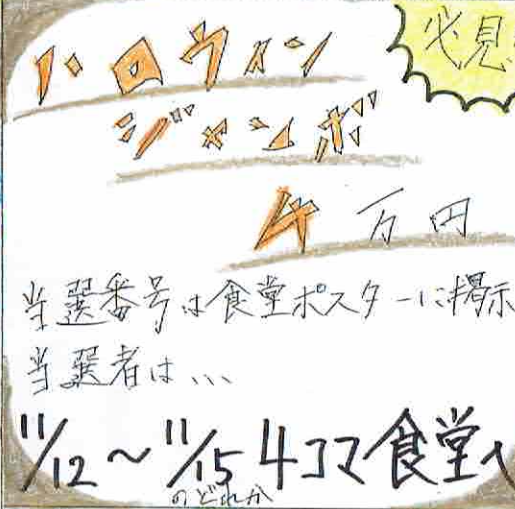 必見
ハロウィン
ジャンボ
4万円
当選番号は食堂ポスターに掲示
当選者は...
11/12〜11/15 4コマ食堂へ
のどれか